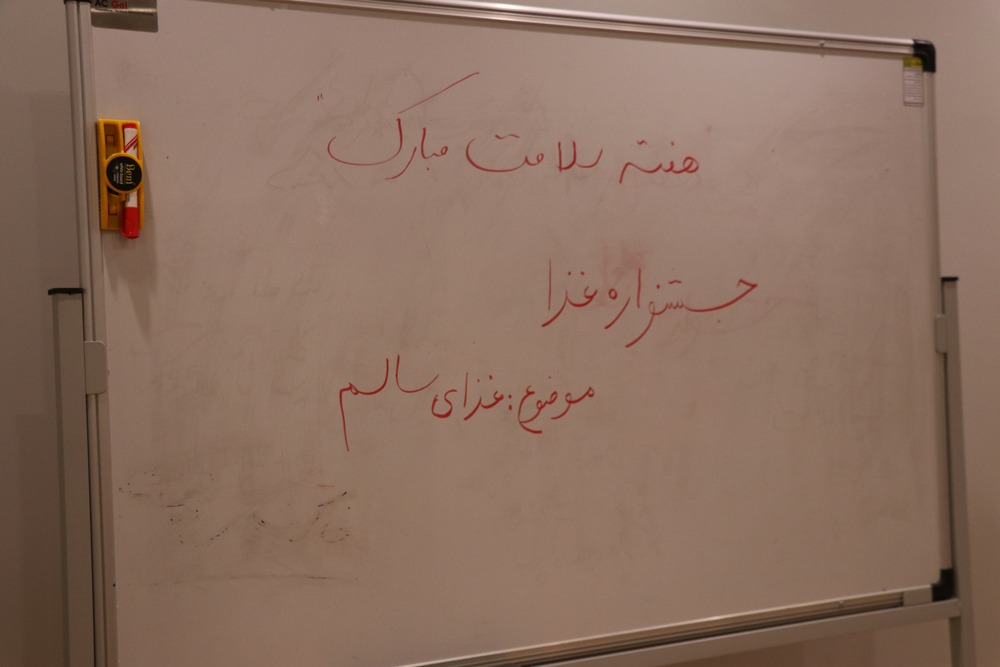 AC Gel
هفته سلامت مبارک
Beni
جشنواره غذا
موضوع: غذای سالم